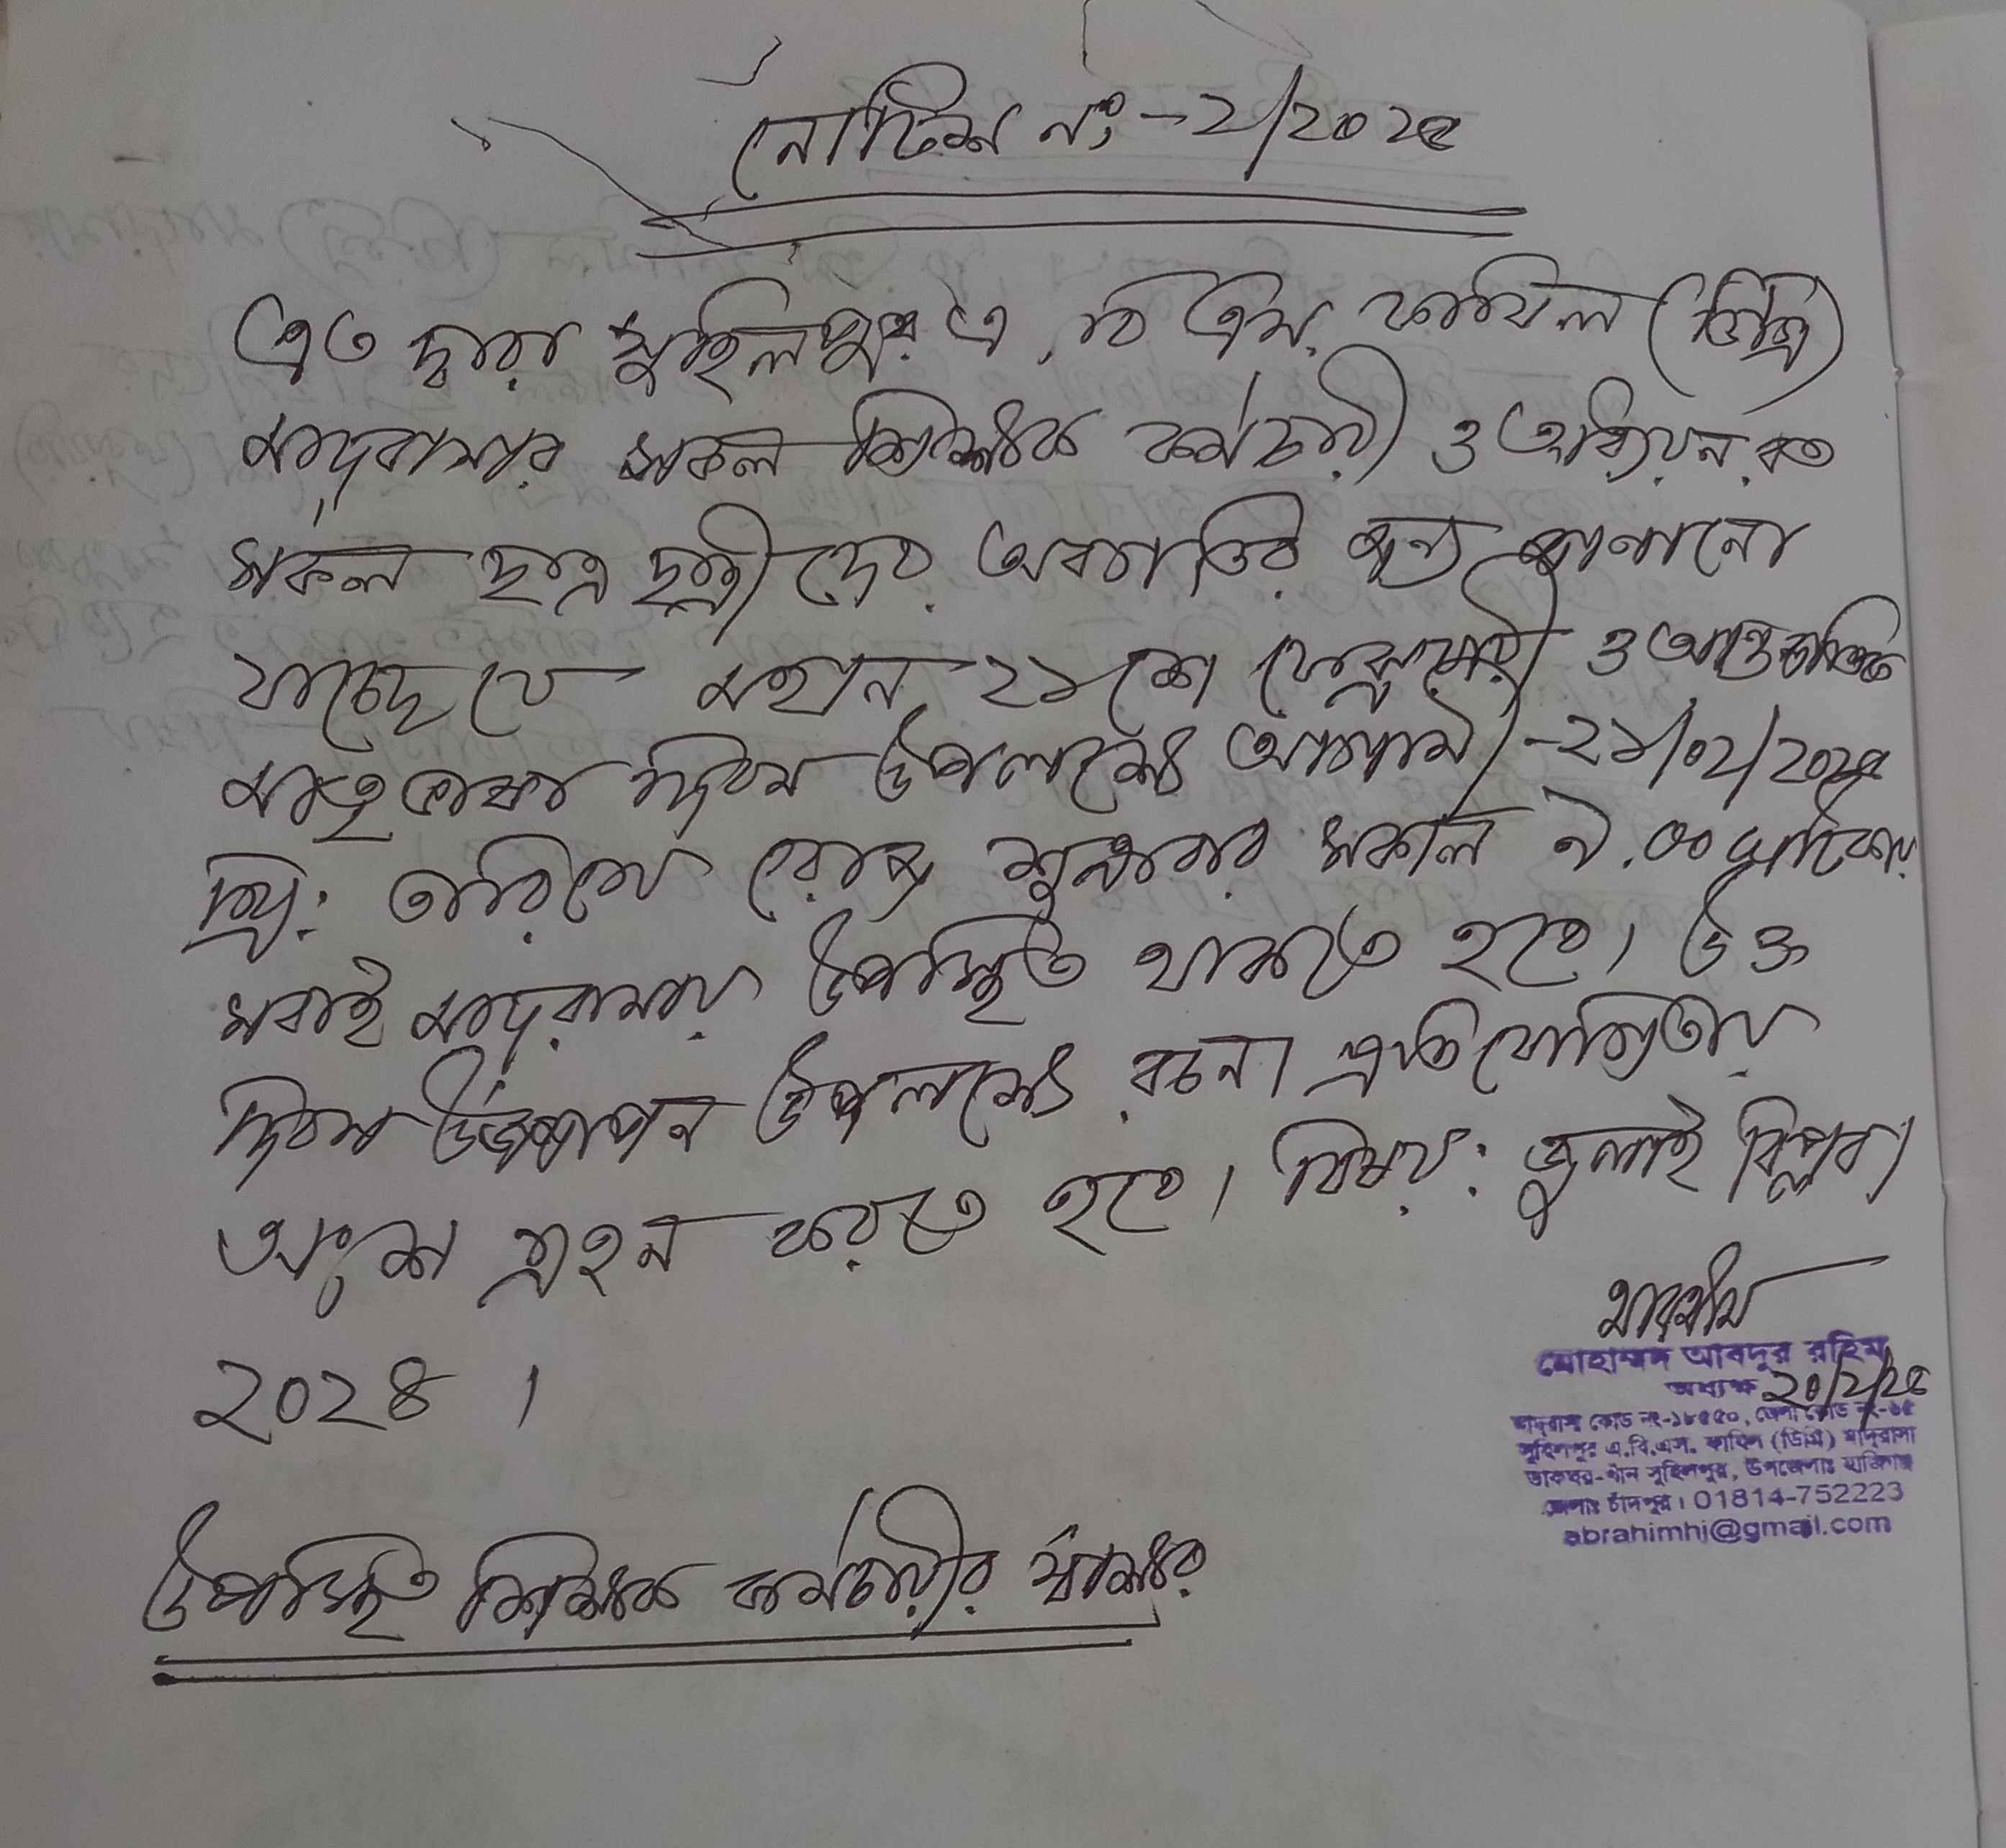 নোটিশ নং-২/২০২৫
এতদ্বারা সুহিলপুর এ.বি.এস. ফাযিল (ডিগ্রি)
মাদ্রাসার সকল শিক্ষক কর্মচারী ও অধ্যয়নরত
সকল ছাত্র ছাত্রীদের অবগতির জন্য জানানো
যাচ্ছে যে মহান ২১শে ফেব্রুয়ারী ও আন্তর্জাতিক
মাতৃভাষা দিবস উপলক্ষ্যে আগামী-২১/০২/২০২৫
খ্রি: তারিখ রোজ শুক্রবার সকাল ৭.৩০ ঘটিকায়
সবাই মাদ্রাসায় উপস্থিত থাকতে হবে। উক্ত
দিবস উদযাপন উপলক্ষ্যে রচনা প্রতিযোগিতায়
অংশ গ্রহন করতে হবে। বিষয়: জুলাই বিপ্লব।
২০২৪।
মোহাম্মদ আবদুর রহিম
অধ্যক্ষ ২০/২/২৫
মাদ্রাসা কোড নং-১৮৫৫০, জেলা কোড নং-৬৫
সুহিলপুর এ.বি.এস. ফাযিল (ডিগ্রি) মাদ্রাসা
ডাকঘর- সুহিলপুর, উপজেলাঃ হাজিগঞ্জ
জেলাঃ চাঁদপুর। 01814-752223
abrahimhj@gmail.com
উপস্থিত শিক্ষক কর্মচারীর স্বাক্ষর